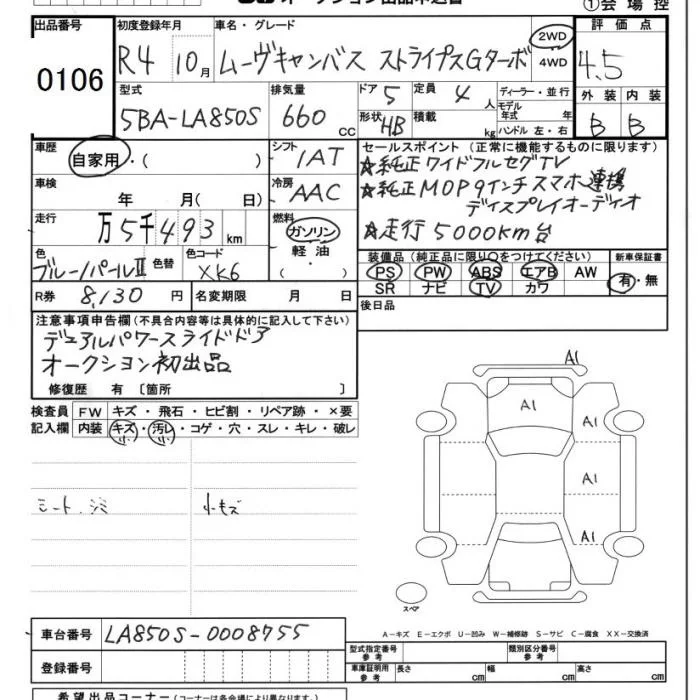 ①会場控
出品番号 初度登録年月 車名・グレード 2WD 評価点
0106 R4 10月 ムーヴキャンバス ストライプスGターボ 4WD 4.5
型式 排気量 ドア 5 定員 4人 ディーラー・並行 外装 内装
5BA-LA850S 660cc 形状 HB 積載 kg モデル年式 年 ハンドル 左・右 B B
車歴 自家用・( ) シフト IAT セールスポイント(正常に機能するものに限ります)
☆純正ワイドフルセグTV
車検 年 月( 日) 冷房 AAC ☆純正MOP9インチスマホ連携
ディスプレイオーディオ
走行 万5千493km 燃料 ガソリン 軽油 ・( ) ☆走行5000km台
色 ブルーノパールⅡ 色替 色コード XK6 装備品(純正品に限り○をつけてください) 新車保証書
PS PW ABS エアB AW 有・無
SR ナビ TV カワ
R券 8,130円 名変期限 月 日 後日品
注意事項申告欄(不具合内容等は具体的に記入して下さい)
デュアルパワースライドドア
オークション初出品
修復歴 有 〔箇所 〕
検査員記入欄 FW キズ・飛石・ヒビ割・リペア跡・×要
内装 キズ・汚レ・コゲ・穴・スレ・キレ・破レ
A1
A1 A1
A1
A1
シート・ジミ 小キズ
スペア
A－キズ E－エクボ U－凹み W－補修跡 S－サビ C－腐食 XX－交換済
車台番号 LA850S-0008755
型式指定番号 参考 類別区分番号 参考
登録番号 車庫証明用 参考 長さ cm 幅 cm 高さ cm
希望出品コーナー(コーナーは各会場により異なります。)